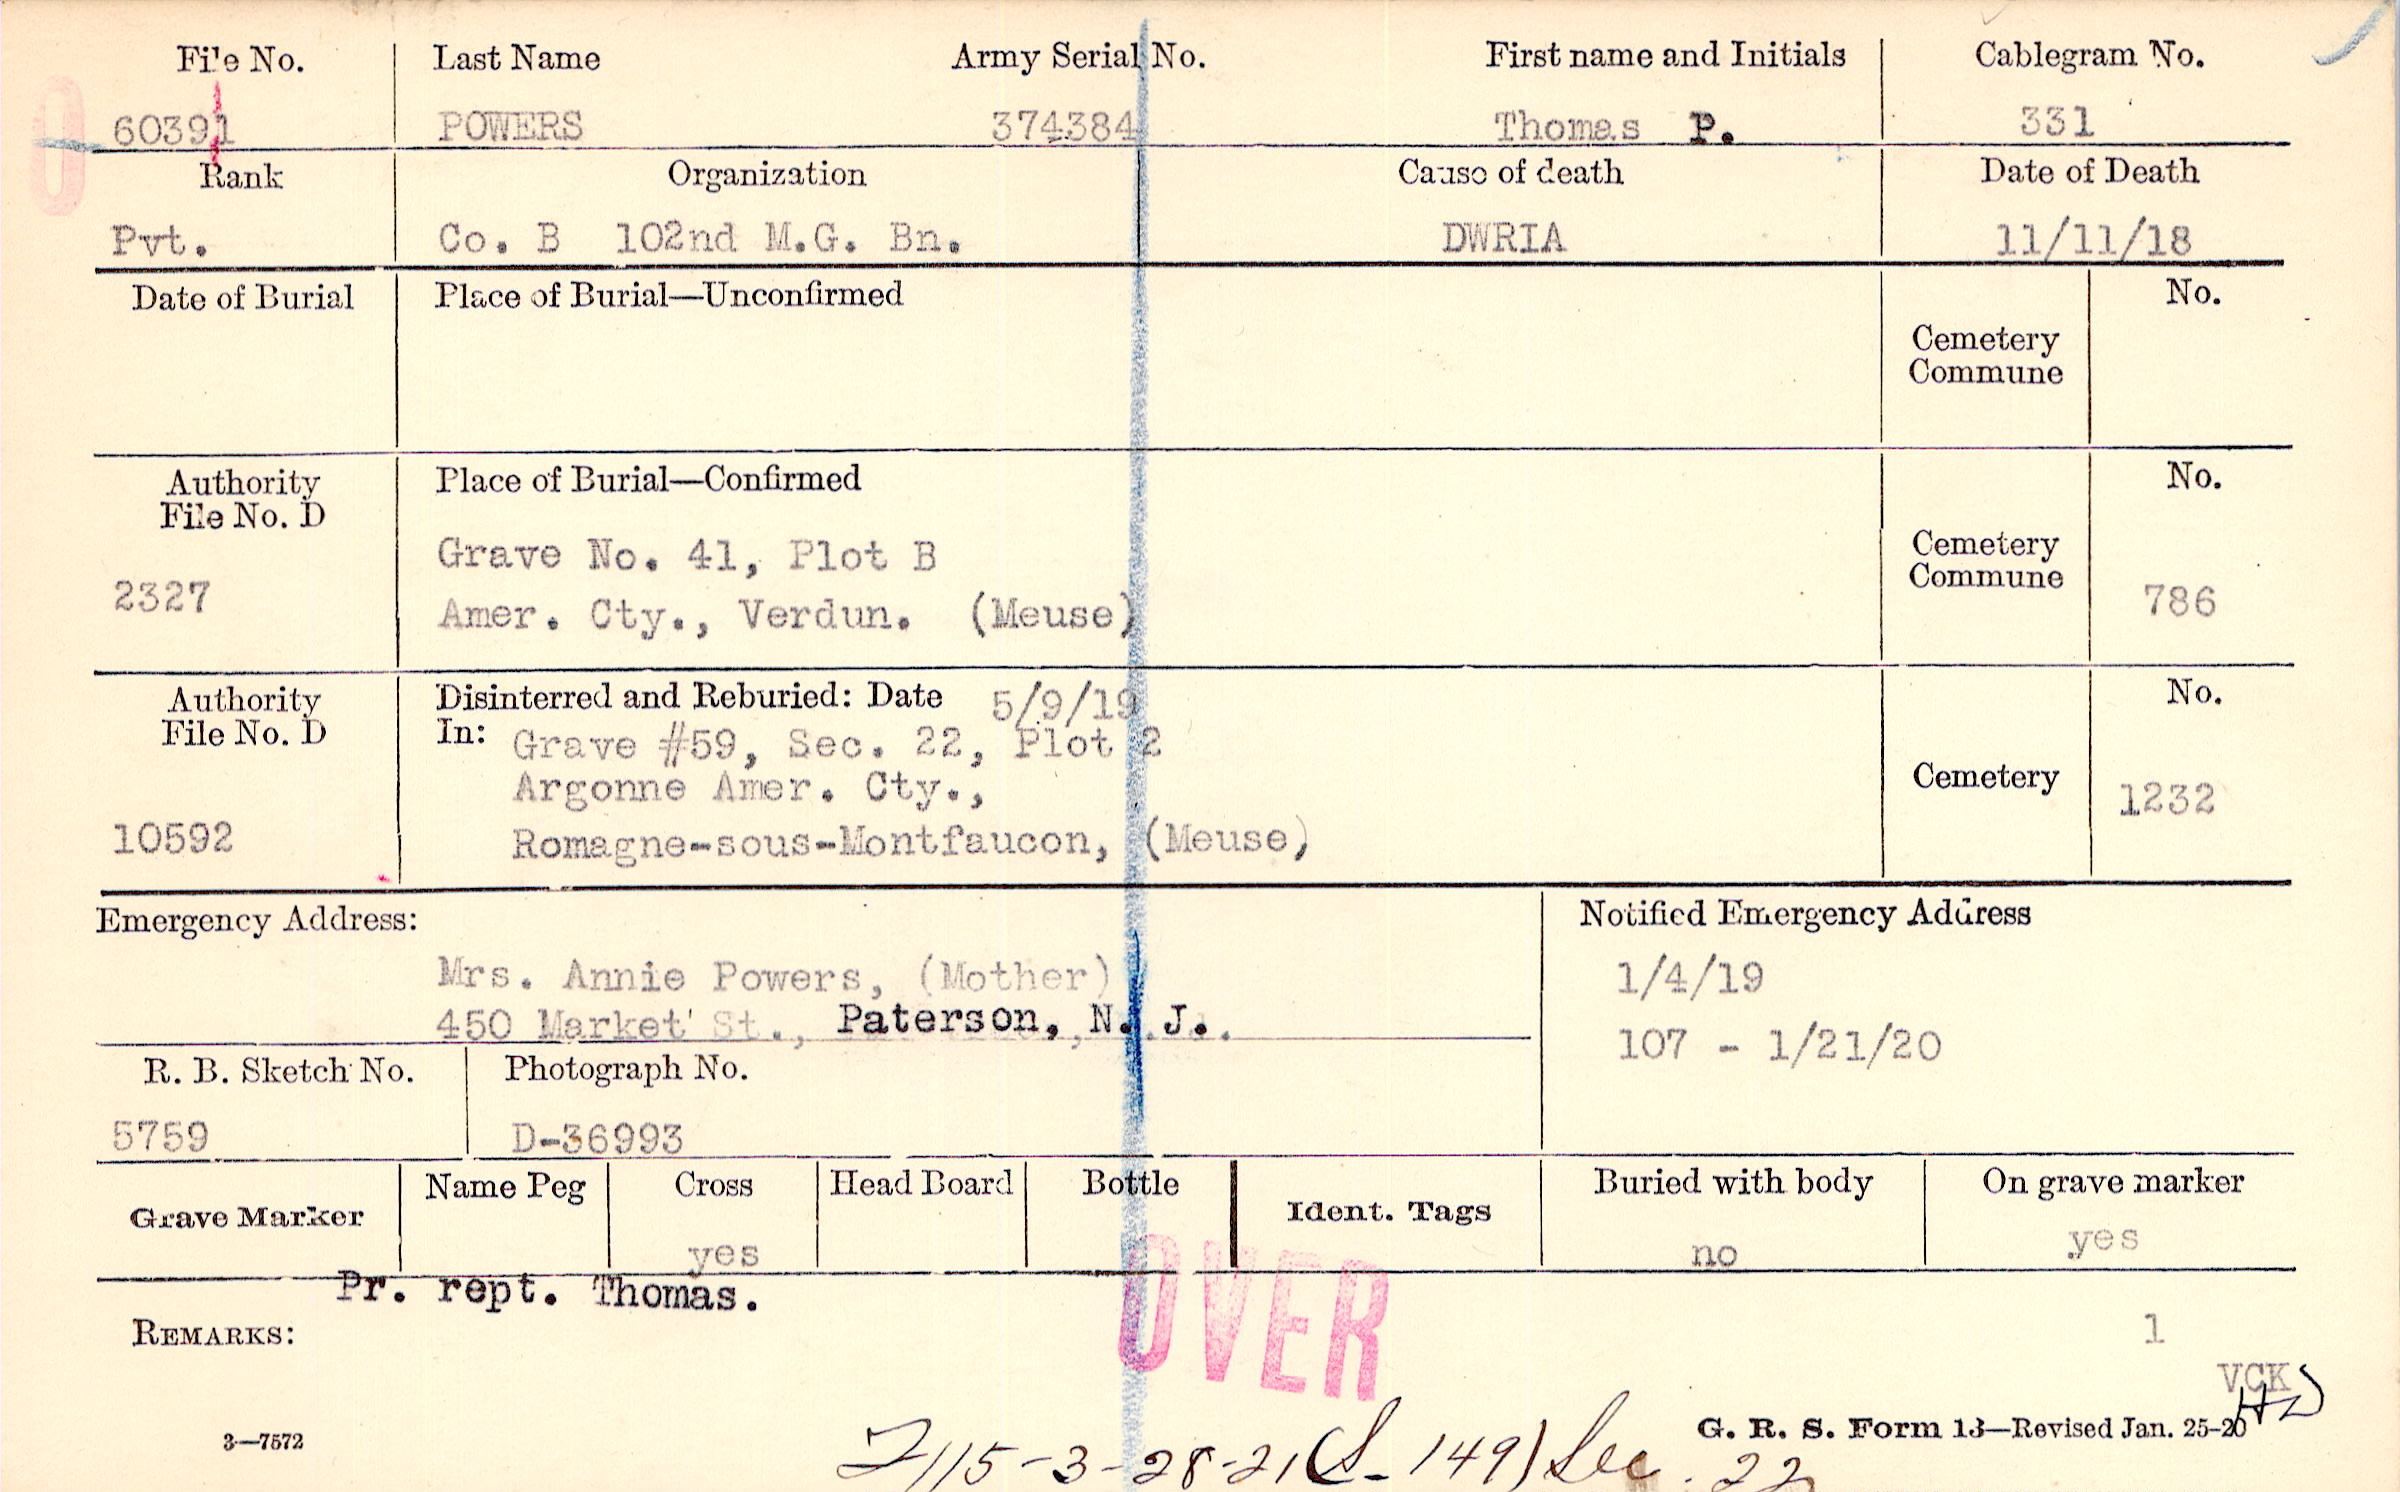 File No. Last Name Army Serial No. First name and Initials Cablegram No.
60391 POWERS 374384 Thomas P. 331
Rank Organization Cause of death Date of Death
Pvt. Co. B 102nd M.G. Bn. DWRIA 11/11/18
Date of Burial Place of Burial—Unconfirmed No.
Cemetery
Commune
Authority Place of Burial—Confirmed No.
File No. D
Grave No. 41, Plot B Cemetery
Commune
2327 Amer. Cty., Verdun. (Meuse) 786
Authority Disinterred and Reburied: Date 5/9/19 No.
File No. D In: Grave #59, Sec. 22, Plot 2
Argonne Amer. Cty., Cemetery 1232
10592 Romagne-sous-Montfaucon, (Meuse)
Emergency Address: Notified Emergency Address
Mrs. Annie Powers, (Mother) 1/4/19
450 Market St., Paterson, N. J. 107 - 1/21/20
R. B. Sketch No. Photograph No.
5759 D-36993
Grave Marker Name Peg Cross Head Board Bottle Ident. Tags Buried with body On grave marker
yes no yes
Pr. rept. Thomas.
OVER
REMARKS: 1
VCK
3—7572 G. R. S. Form 13—Revised Jan. 25-20
115-3-28-21 (S-149) Sec. 22